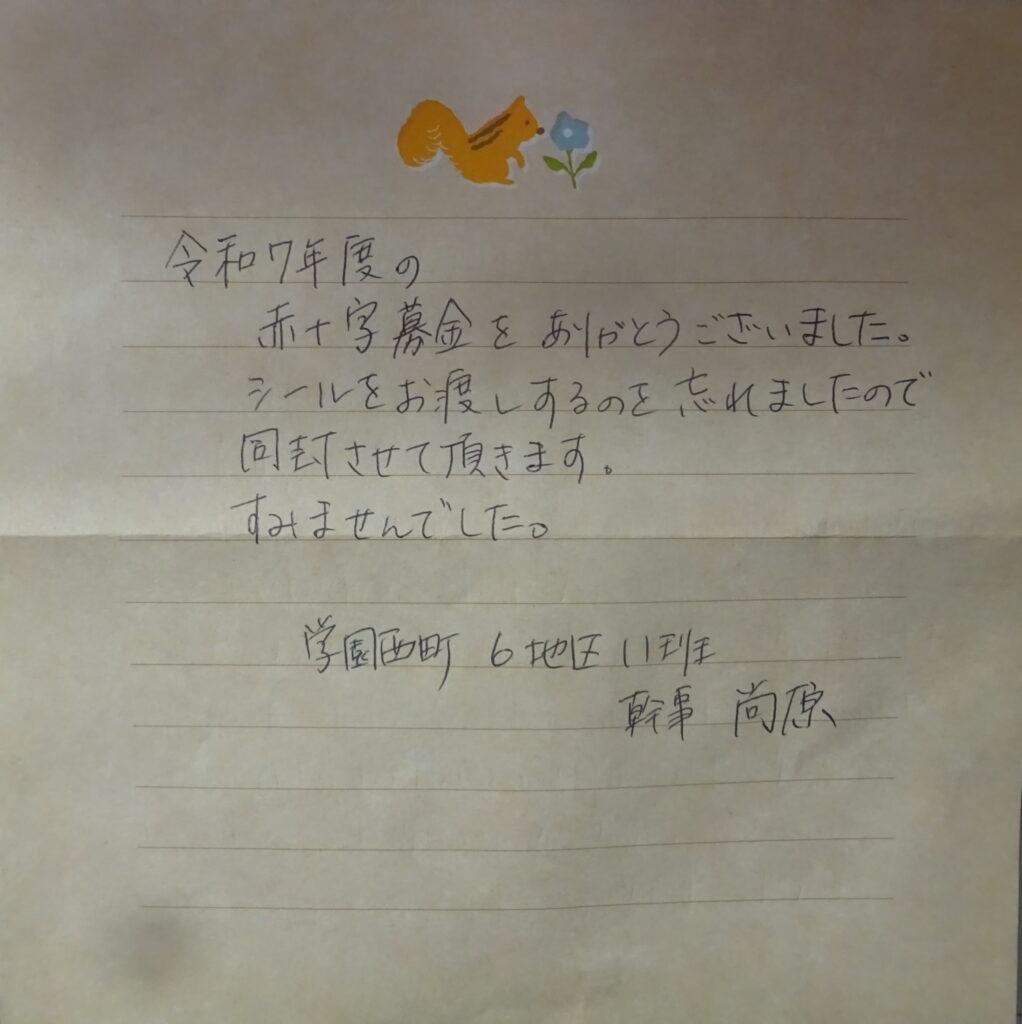 令和7年度の
赤十字募金を ありがとうございました。
シールをお渡しするのを忘れましたので
同封させて頂きます。
すみませんでした。
学園西町 6地区 11班
幹事 尚原